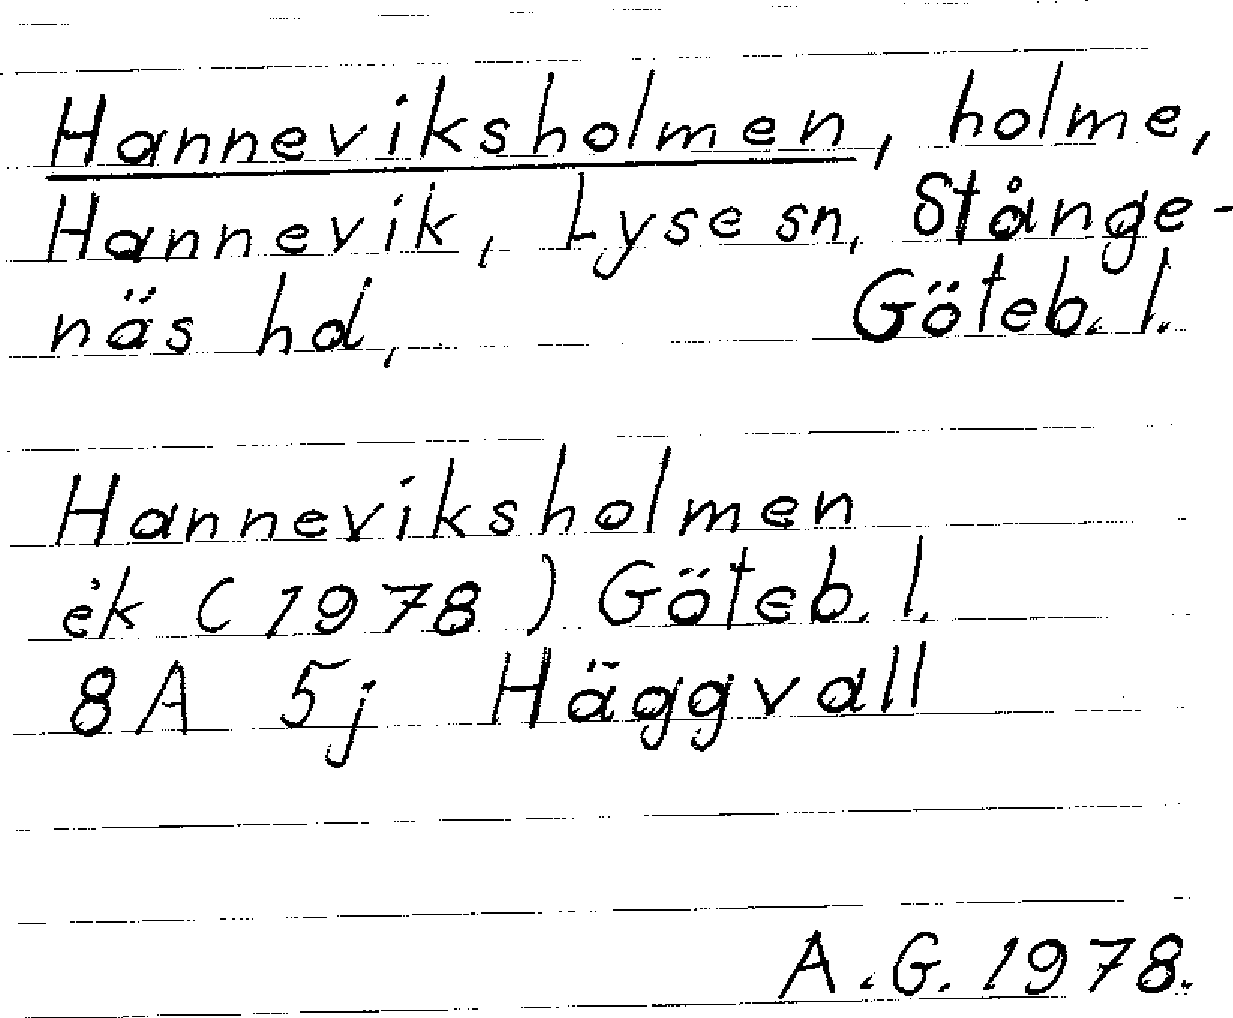 Hanneviksholmen, holme,
Hannevik, Lyse sn, Stånge-
näs hd, Göteb. l.
Hanneviksholmen
ek (1978) Göteb. l.
8A 5j Häggvall
A.G. 1978.